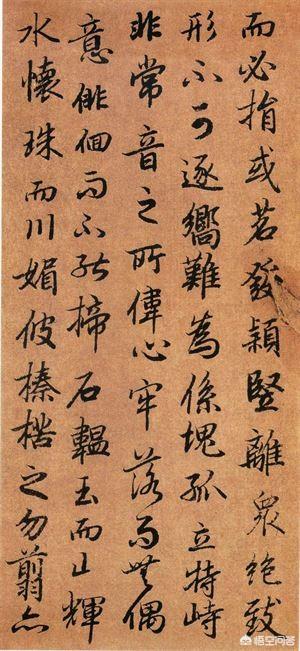 而必捐或苕發穎竪離衆絕致
形不可逐嚮難為係塊孤立特峙
非常音之所偉心牢落而無偶
意俳佪而不能揥石韞玉而山輝
水懷珠而川媚彼榛楛之勿翦亦
悟空问答